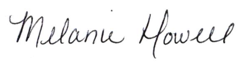 Melanie Howell